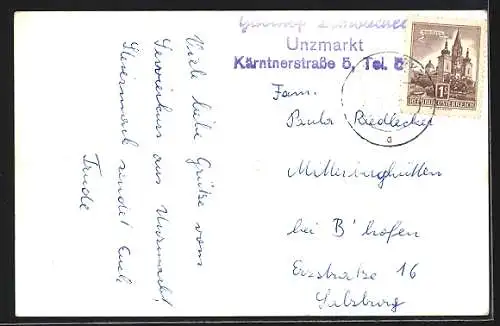 Unzmarkt
Kärntnerstraße 5, Tel. 5
1S
REPUBLIK ÖSTERREICH
Viele liebe Grüße vom
Servierkurs aus Unzmarkt,
Steiermark sendet Euch
Trude
Fam.
Paula Riedlecker
Mitterberghütten
bei B'hofen
Erzstraße 16
Salzburg